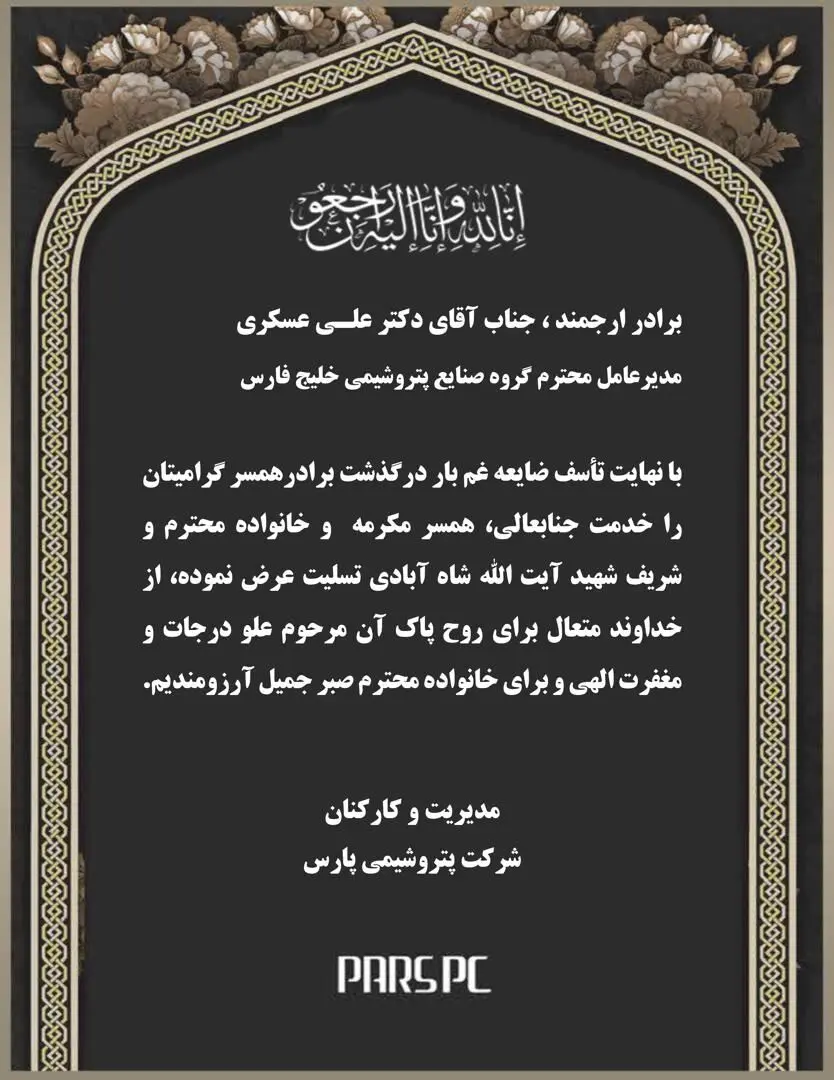 إنّا لله و إنّا إلیه راجعون
برادر ارجمند ، جناب آقای دکتر علـــی عسکری
مدیرعامل محترم گروه صنایع پتروشیمی خلیج فارس
با نهایت تأسف ضایعه غم بار درگذشت برادرهمسر گرامیتان
را خدمت جنابعالی، همسر مکرمه و خانواده محترم و
شریف شهید آیت الله شاه آبادی تسلیت عرض نموده، از
خداوند متعال برای روح پاک آن مرحوم علو درجات و
مغفرت الهی و برای خانواده محترم صبر جمیل آرزومندیم.
مدیریت و کارکنان
شرکت پتروشیمی پارس
PARSPC